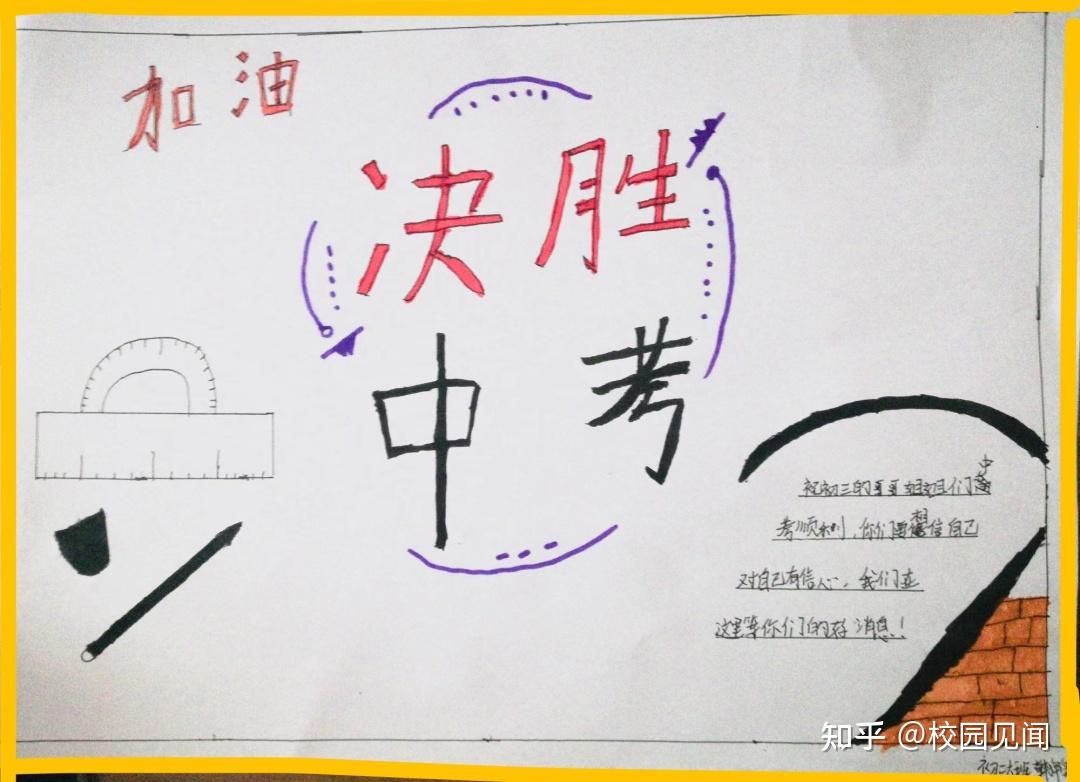 加油
决胜
中考
祝初三的哥哥姐姐们中
考顺利,你们要相信自己
对自己有信心,我们在
这里等你们的好消息!
知乎 @校园见闻
初二六班